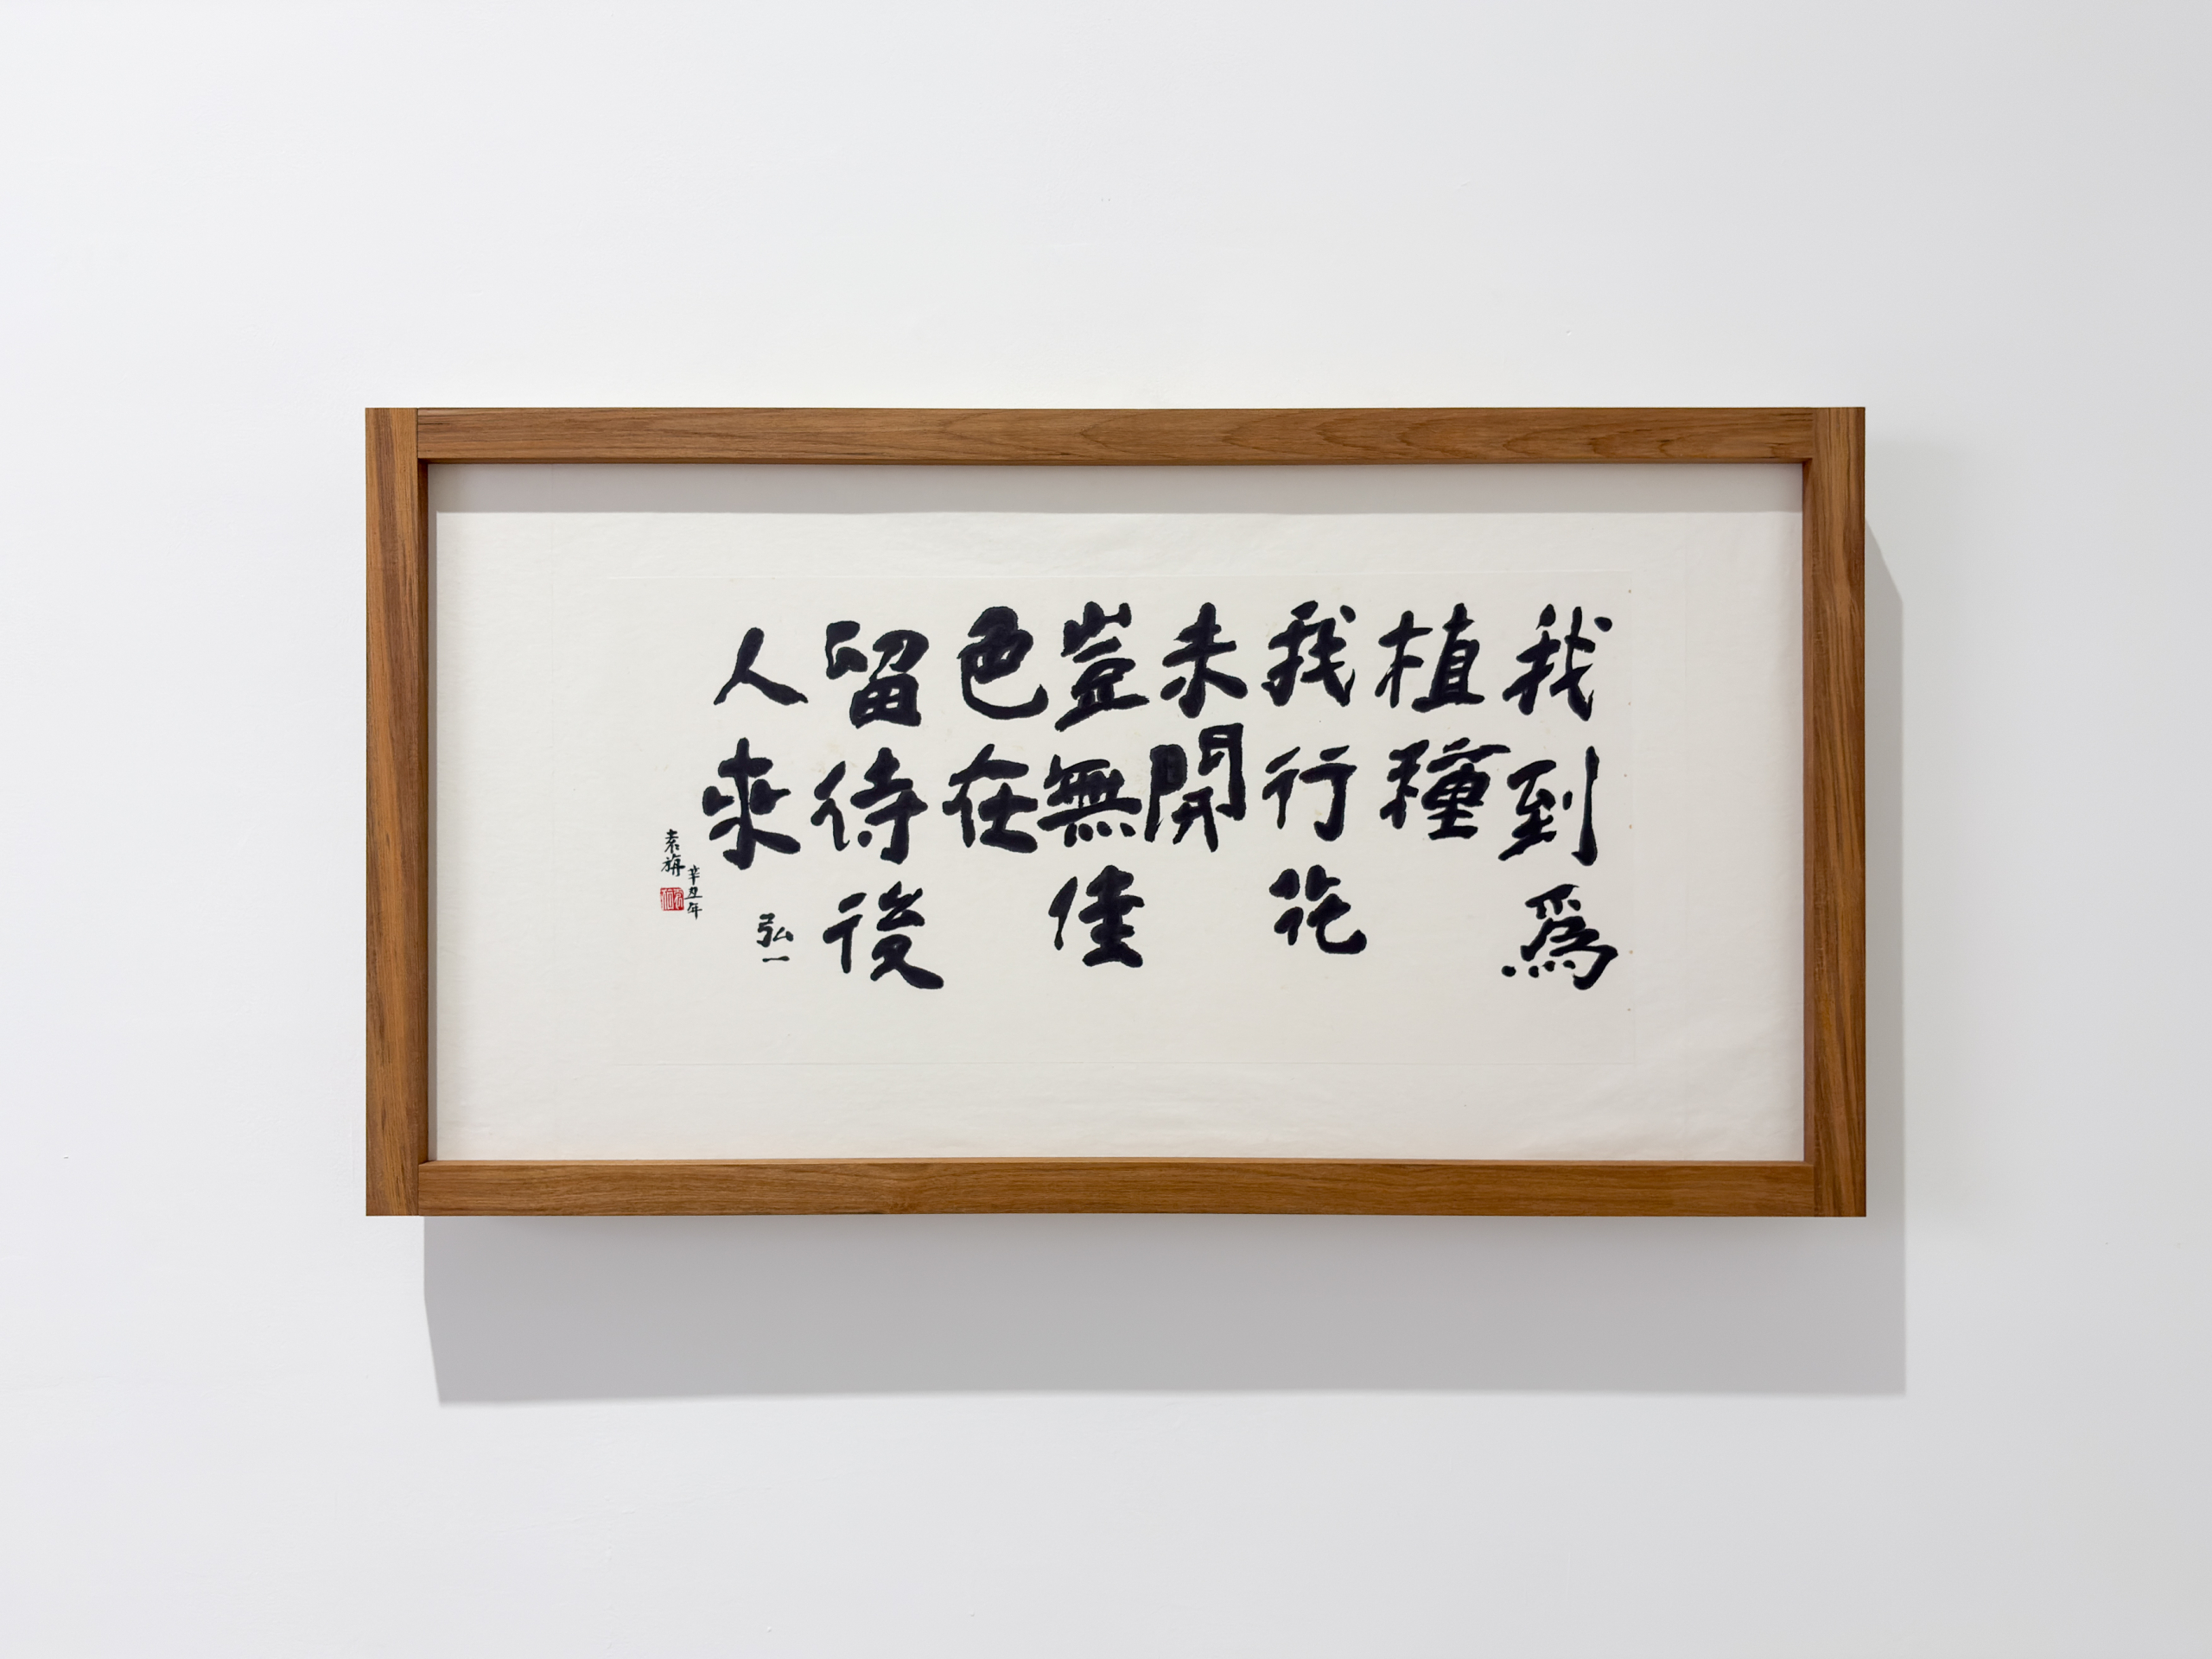 我到爲
植種
我行花
未開
豈無佳
色在
留待後
人來
弘一
辛丑年